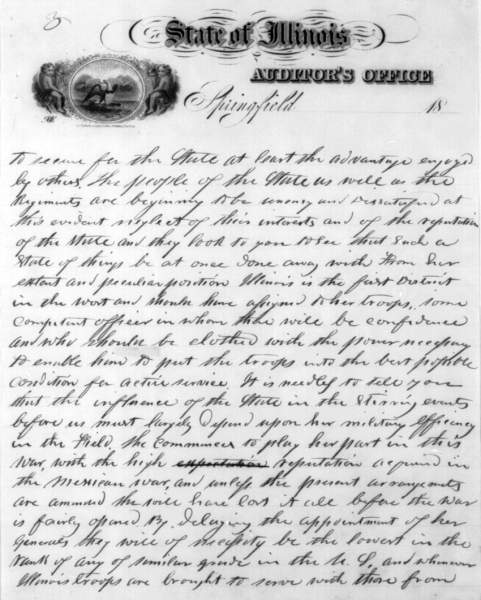 8
State of Illinois
AUDITOR'S OFFICE
Springfield 18
to secure for the State at least the advantage enjoyed
by others. The people of the State as well as the
Regiments are beginning to be uneasy and dissatisfied at
this evident neglect of their interests and of the reputation
of the State and they look to you to see that such a
State of things be at once done away with From her
extent and peculiar position Illinois is the first District
in the west and should have assigned to her troops, some
competent officer in whom there will be confidence
and who should be clothed with the power necessary
to enable him to put the troops into the best possible
condition for active service. It is needless to tell you
that the influence of the State in the stirring events
before us must largely depend upon her military efficiency
in the Field. She commences to play her part in this
war, with the high expectation reputation acquired in
the Mexican war, and unless the present arrangements
are ammended she will have lost it all before the war
is fairly opened By delaying the appointment of her
Generals they will of necessity be the lowest in the
rank of any of similar grade in the U. S. and whenever
Illinois troops are brought to serve with those from